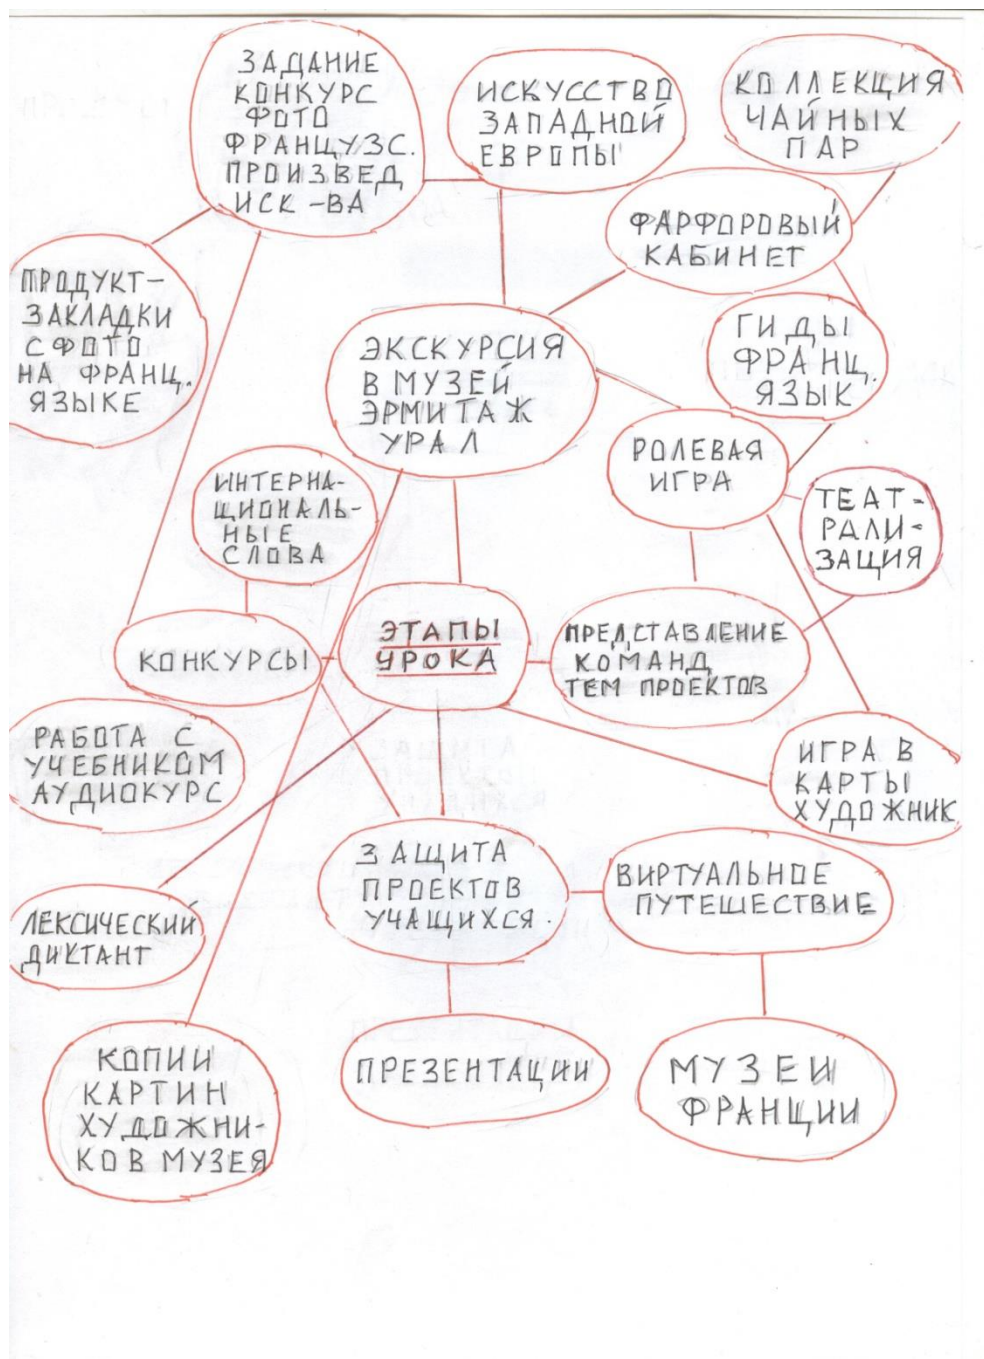 ЗАДАНИЕ
КОНКУРС
ФОТО
ФРАНЦУЗС.
ПРОИЗВЕД
ИСК-ВА
ИСКУССТВО
ЗАПАДНОЙ
ЕВРОПЫ
КОЛЛЕКЦИЯ
ЧАЙНЫХ
ПАР
ФАРФОРОВЫЙ
КАБИНЕТ
ПРОДУКТ-
ЗАКЛАДКИ
С ФОТО
НА ФРАНЦ.
ЯЗЫКЕ
ЭКСКУРСИЯ
В МУЗЕЙ
ЭРМИТАЖ
УРАЛ
ГИДЫ
ФРАНЦ.
ЯЗЫК
РОЛЕВАЯ
ИГРА
ИНТЕРНА-
ЦИОНАЛЬ-
НЫЕ
СЛОВА
ТЕАТ-
РАЛИ-
ЗАЦИЯ
КОНКУРСЫ
ЭТАПЫ
УРОКА
ПРЕДСТАВЛЕНИЕ
КОМАНД
ТЕМ ПРОЕКТОВ
РАБОТА С
УЧЕБНИКОМ
АУДИОКУРС
ИГРА В
КАРТЫ
ХУДОЖНИК
ЗАЩИТА
ПРОЕКТОВ
УЧАЩИХСЯ.
ВИРТУАЛЬНОЕ
ПУТЕШЕСТВИЕ
ЛЕКСИЧЕСКИЙ
ДИКТАНТ
КОПИИ
КАРТИН
ХУДОЖНИ-
КОВ МУЗЕЯ
ПРЕЗЕНТАЦИИ
МУЗЕИ
ФРАНЦИИ